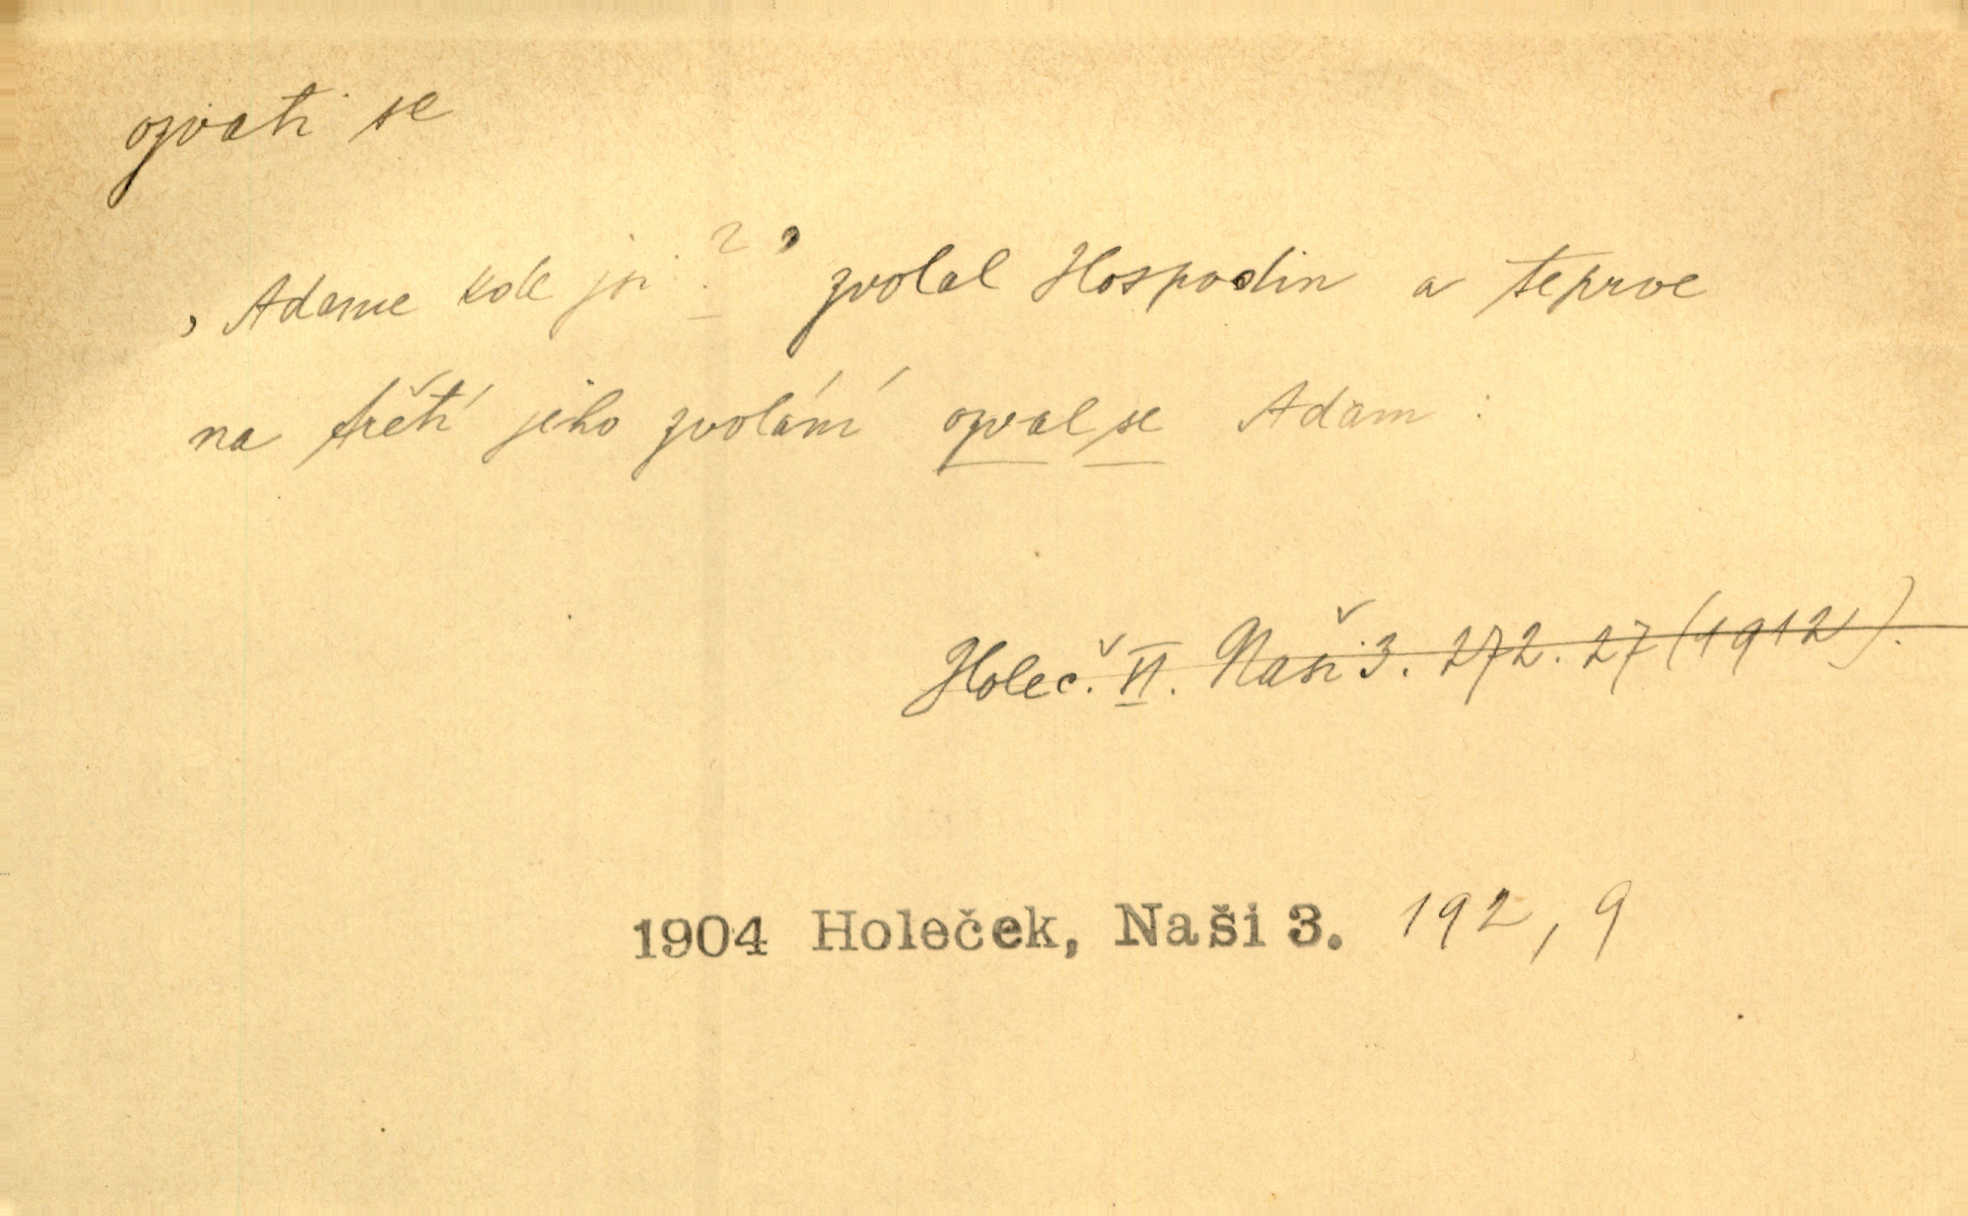 ozvati se
‚Adame kde jsi?‘ zvolal Hospodin a teprve
na třetí jeho zvolání ozval se Adam:
Holeč. VI. Naši 3. 272. 27 (1912).
1904 Holeček, Naši 3. 192, 9